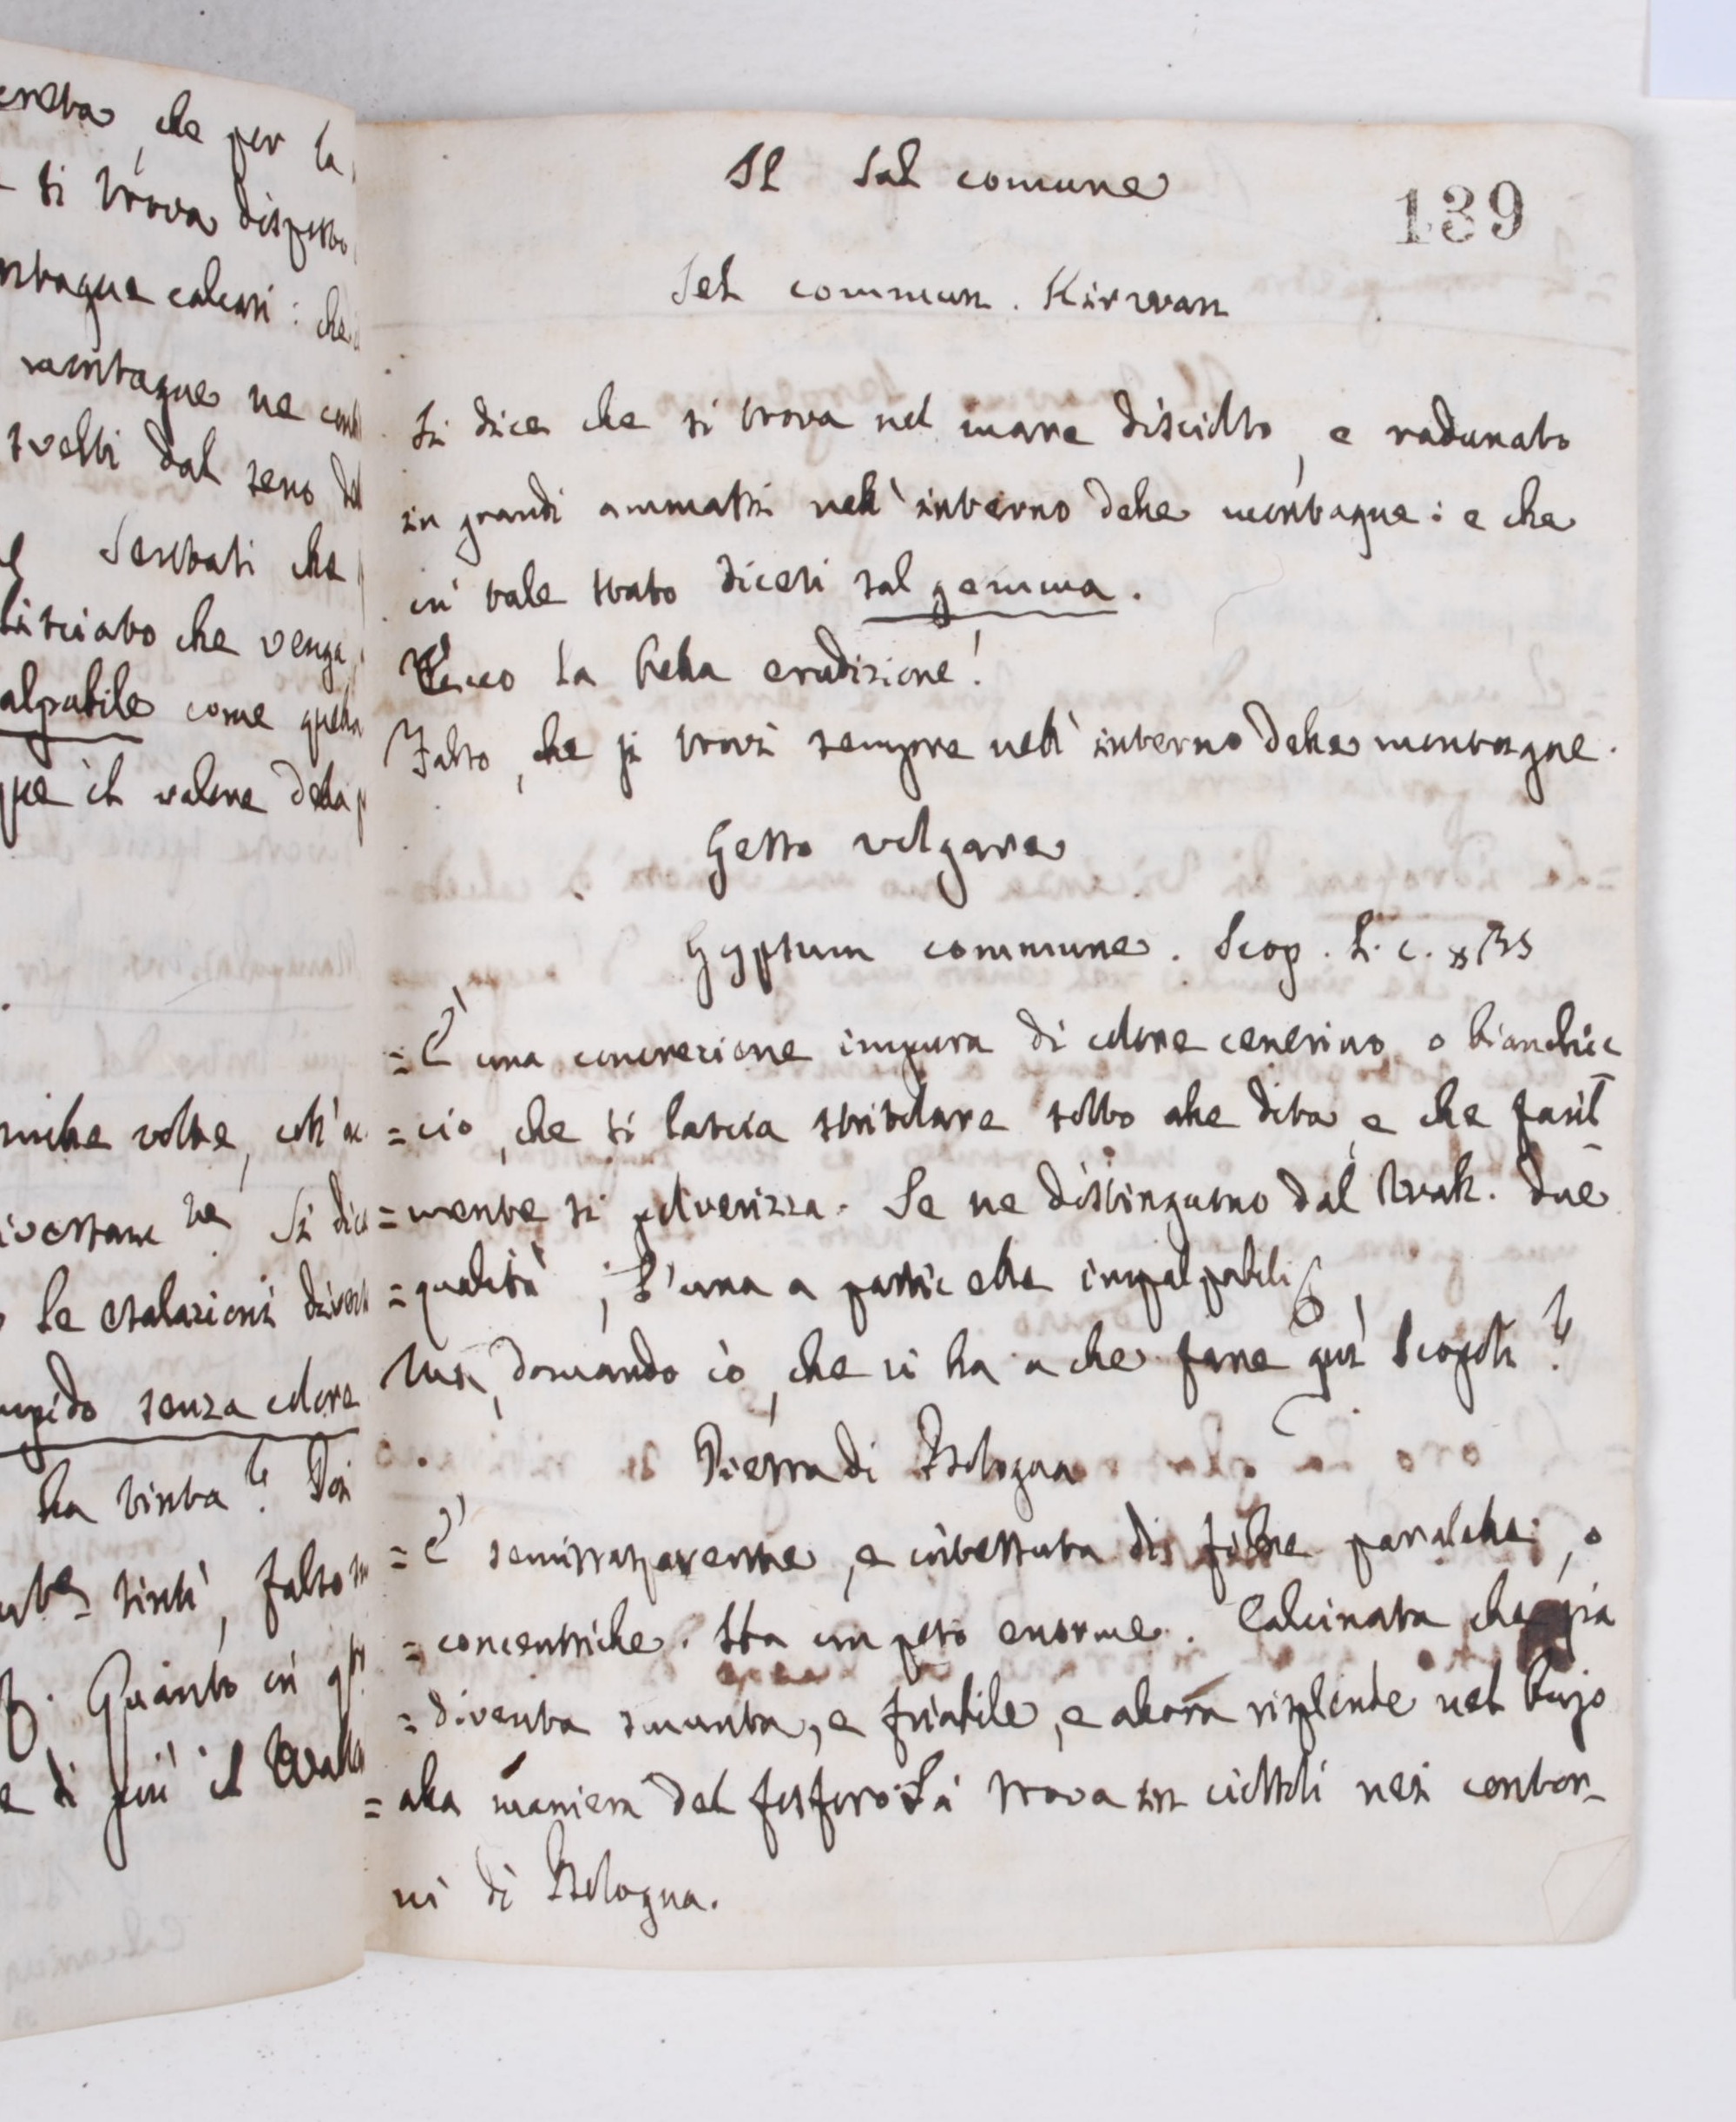 ereta, che per la
si trova disperso
ntagne calcari: che
montagne ne
svelti dal seno del
che
lisciato che venga
alpabile come quella
que il valore della
miche volte, coll'
Si dice
le esalazioni
mpido senza colore
ha tinta? Poi
tinti, falso
Quanto in
e di più il
Il Sal comune
139
Sel commun. Kirwan
Si dice che si trova nel mare disciolto, e radunato
in grandi ammassi nell'interno delle montagne: e che
in tale stato dicesi sal gemma.
Ecco la bella erudizione!
Falso, che si trovi sempre nell'interno delle montagne.
Gesso volgare
Gypsum commune. Scop. l. c.
= È una concrezione impura di colore cenerino, o bianchic
= cio, che si lascia stritolare sotto alle dita, e che facil
= mente si polverizza. Se ne distinguono dal Wall. due
= qualità; l'una a particelle impalpabili
Ma, domando io, che ci ha a che fare quì Scopoli?
Pietra di Bologna
= È semitrasparente, e intessuta di fibre paralelle, o
= concentriche. Ha un peso enorme. Calcinata che sia
= diventa smunta, e friabile, e allora risplende nel bujo
= alla maniera del fosforo. Si trova in ciottoli nei contor-
ni di Bologna.